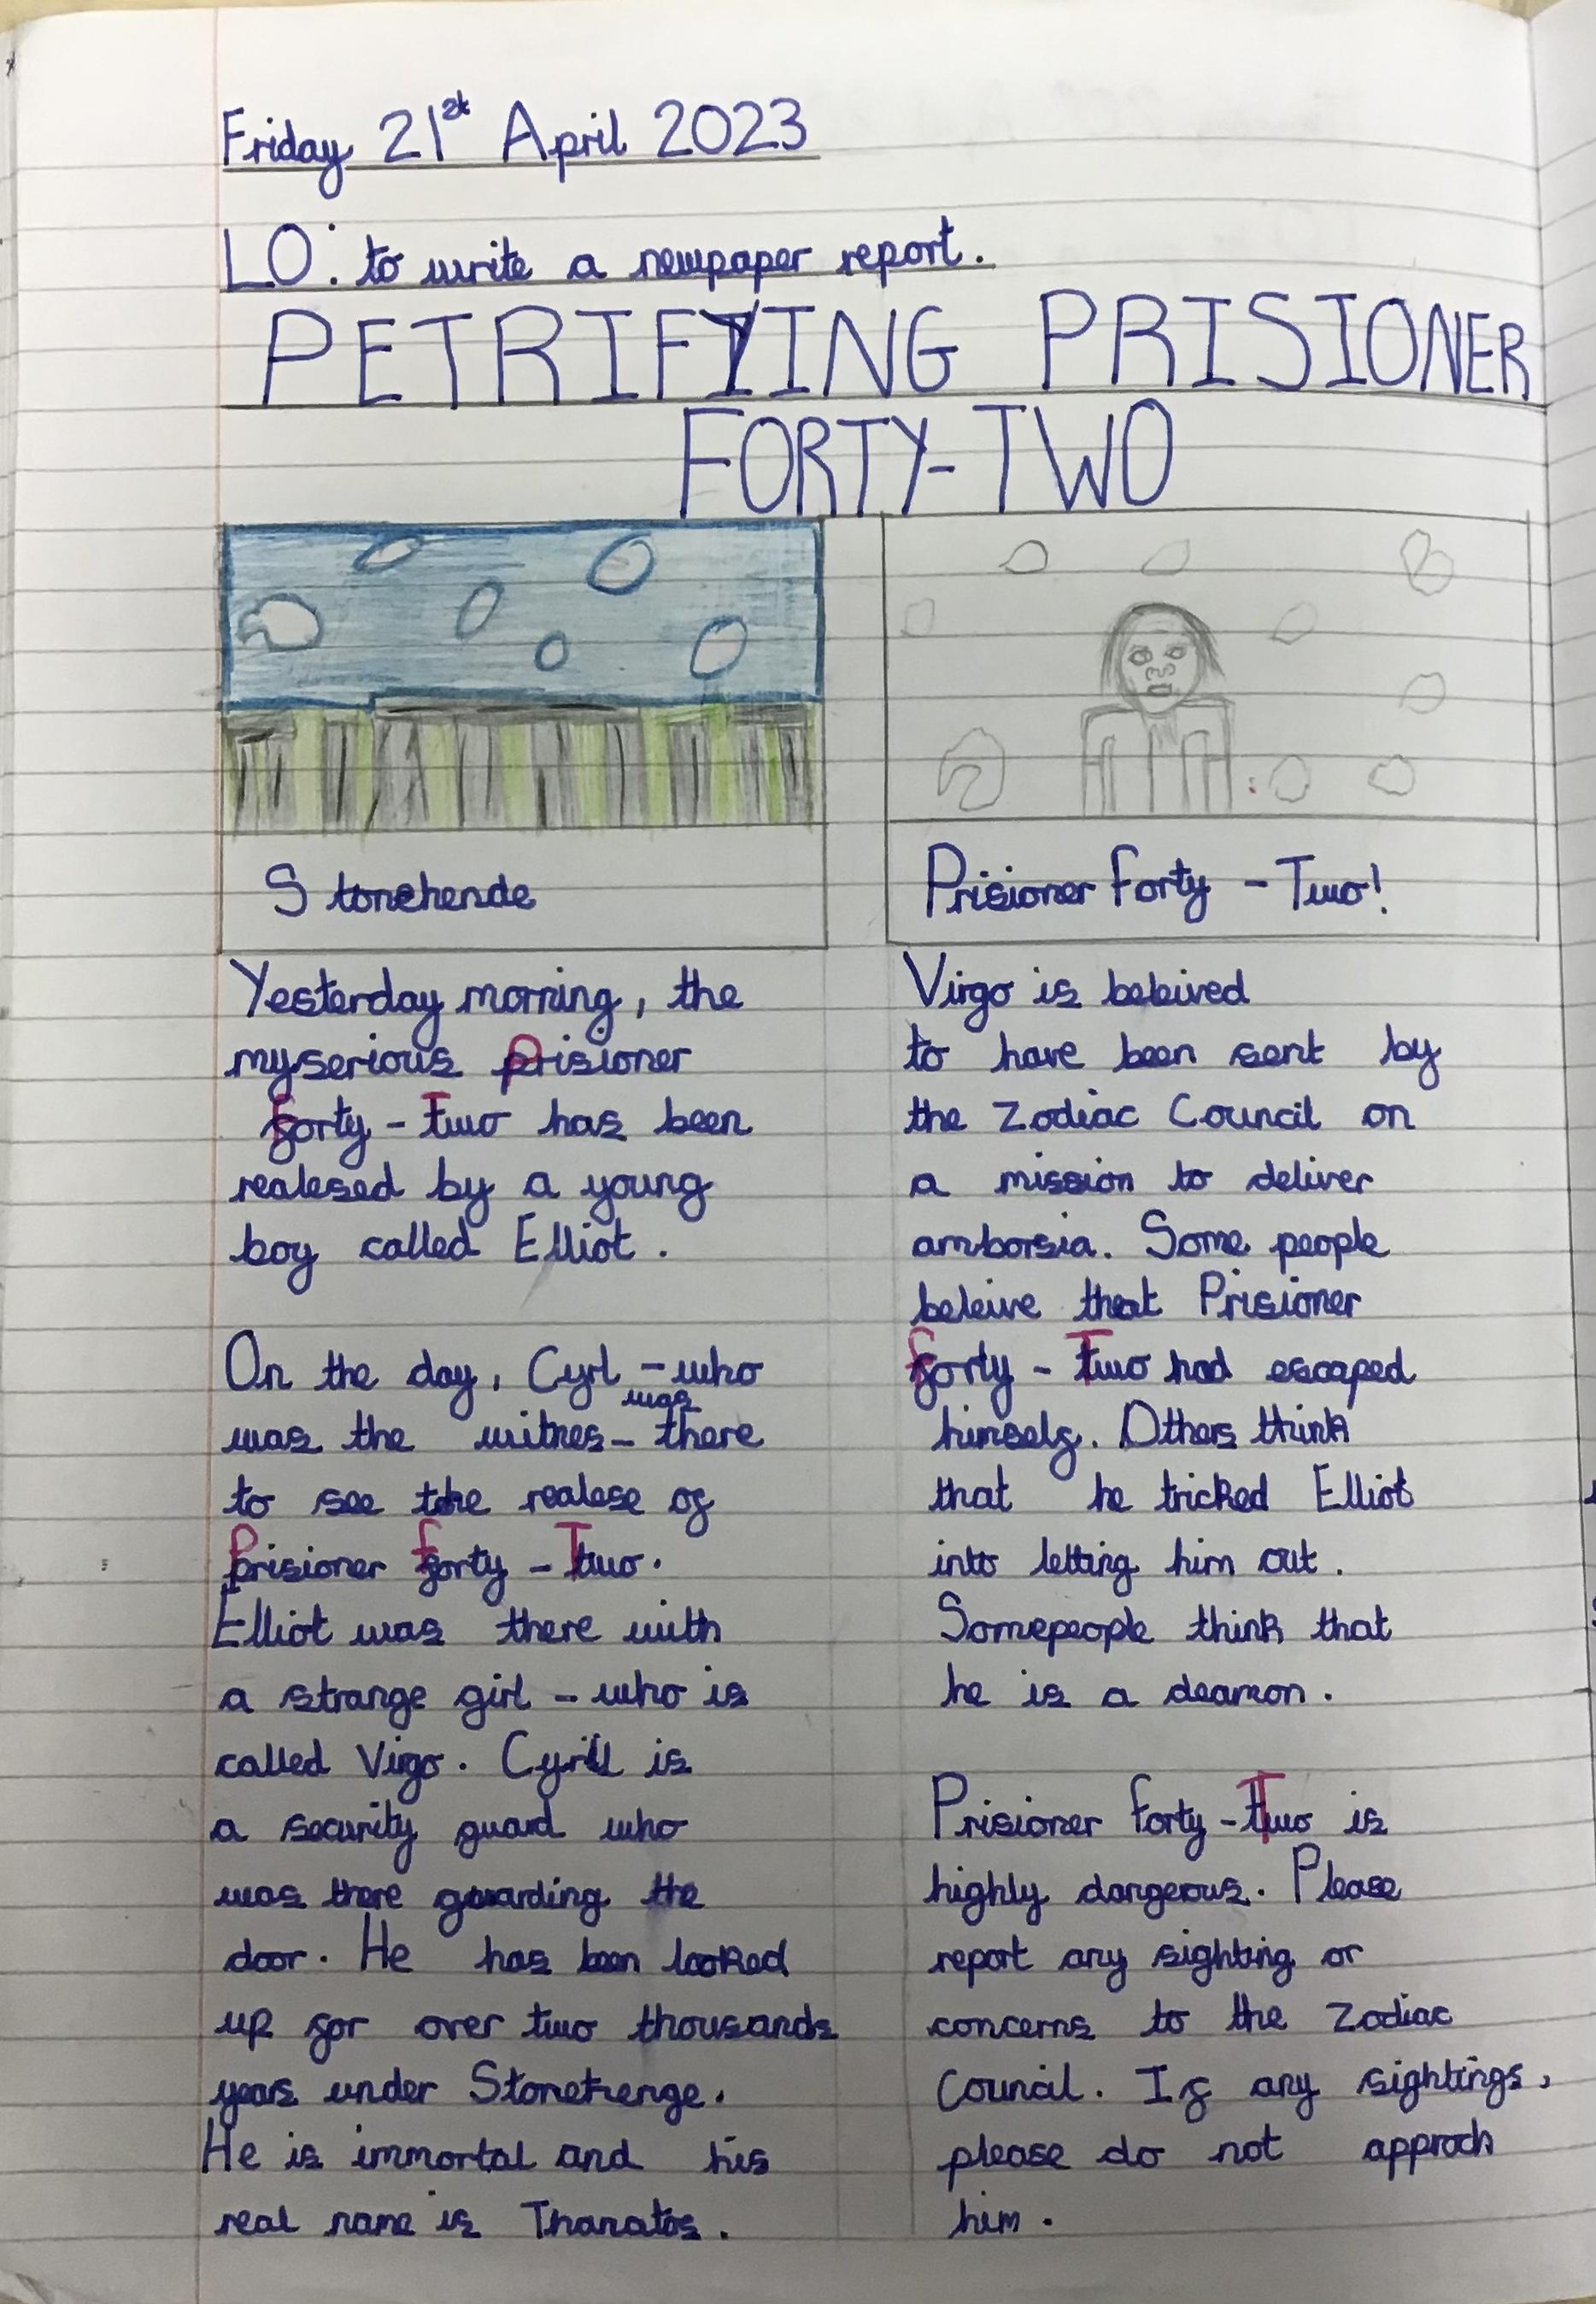 Friday 21st April 2023
LO: to write a newpaper report.
PETRIFYING PRISIONER
FORTY-TWO
Stonehende
Prisioner Forty - Two!
Yesterday morning, the
myserious Prisioner
Forty - Two has been
realesed by a young
boy called Elliot.
On the day, Cyrl - who
was the witnes - was there
to see the realese of
Prisioner Forty - Two.
Elliot was there with
a strange girl - who is
called Virgo. Cyril is
a security guard who
was there guarding the
door. He has been looked
up for over two thousands
years under Stonehenge.
He is immortal and his
real name is Thanatos.
Virgo is beleived
to have been sent by
the Zodiac Council on
a mission to deliver
amborsia. Some people
beleive that Prisioner
Forty - Two had escaped
himself. Others think
that he tricked Elliot
into letting him out.
Somepeople think that
he is a deamon.
Prisioner Forty - Two is
highly dangerous. Please
report any sighting or
concerns to the Zodiac
Council. If any sightings,
please do not approch
him.